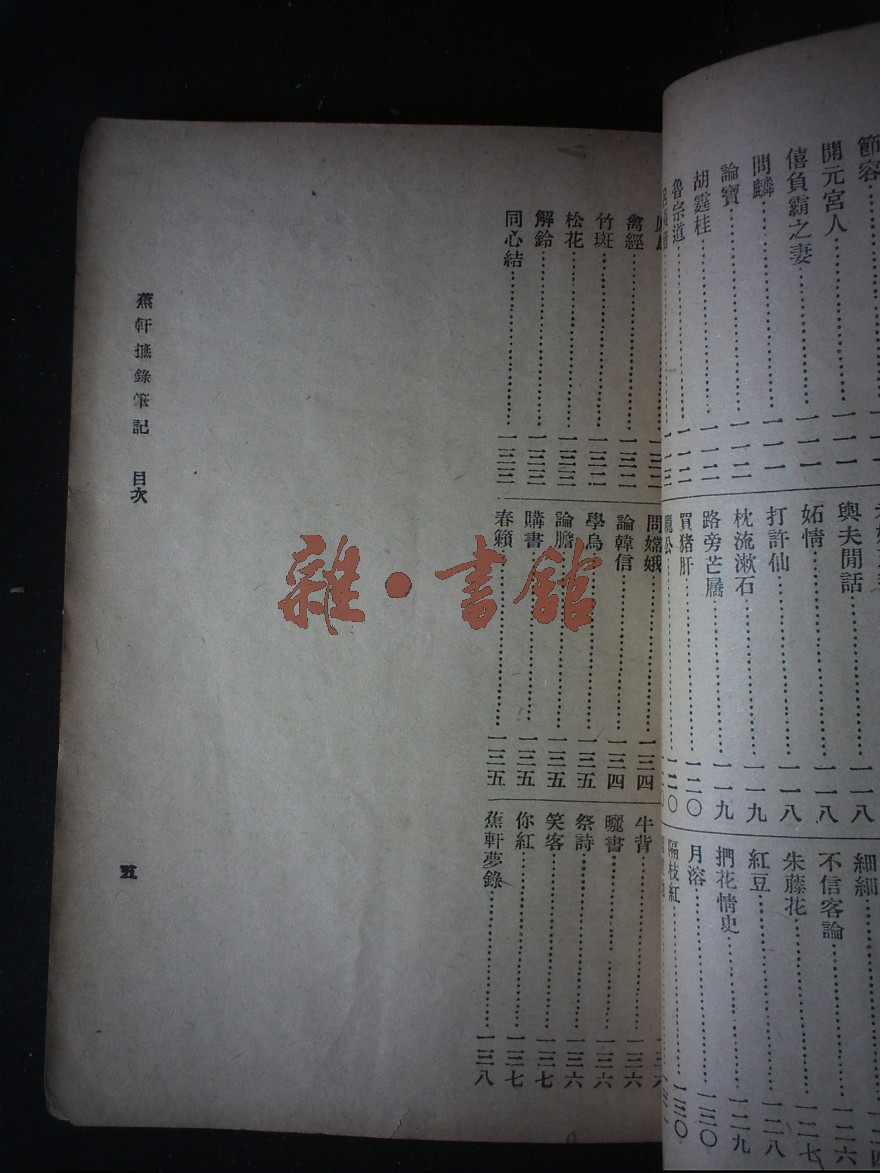 節容
開元宮人……一一一
僖負霸之妻……一一一
問麟……一一一
論寶……一一二
胡霆桂……一一二
魯宗道……一一三
輿夫閒話……一一八
妬情……一一八
打許仙……一一八
枕流漱石……一一九
路旁芒屩……一一九
買猪肝……一二〇
細細
不信客論……一二六
朱藤花……一二七
紅豆……一二八
捫花情史……一二九
月溶……一三〇
隔枝紅……一三〇
禽經……一三二
竹斑……一三二
松花……一三三
解鈴……一三三
同心結……一三三
問嫦娥……一三四
論韓信……一三四
學烏……一三五
論膽……一三五
購書……一三五
春籟……一三五
牛背……一三六
曬書……一三六
祭詩……一三六
笑客……一三七
你紅……一三七
蕉軒夢錄……一三八
蕉軒摭錄筆記 目次
五
雜·書館